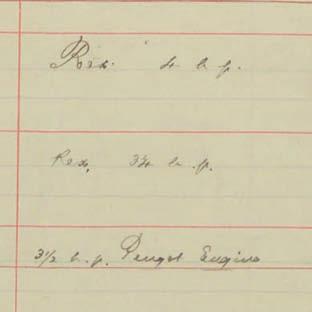 Rex. 4 h.p.
Rex, 3¾ h.p.
3½ h.p. Peugot Engine